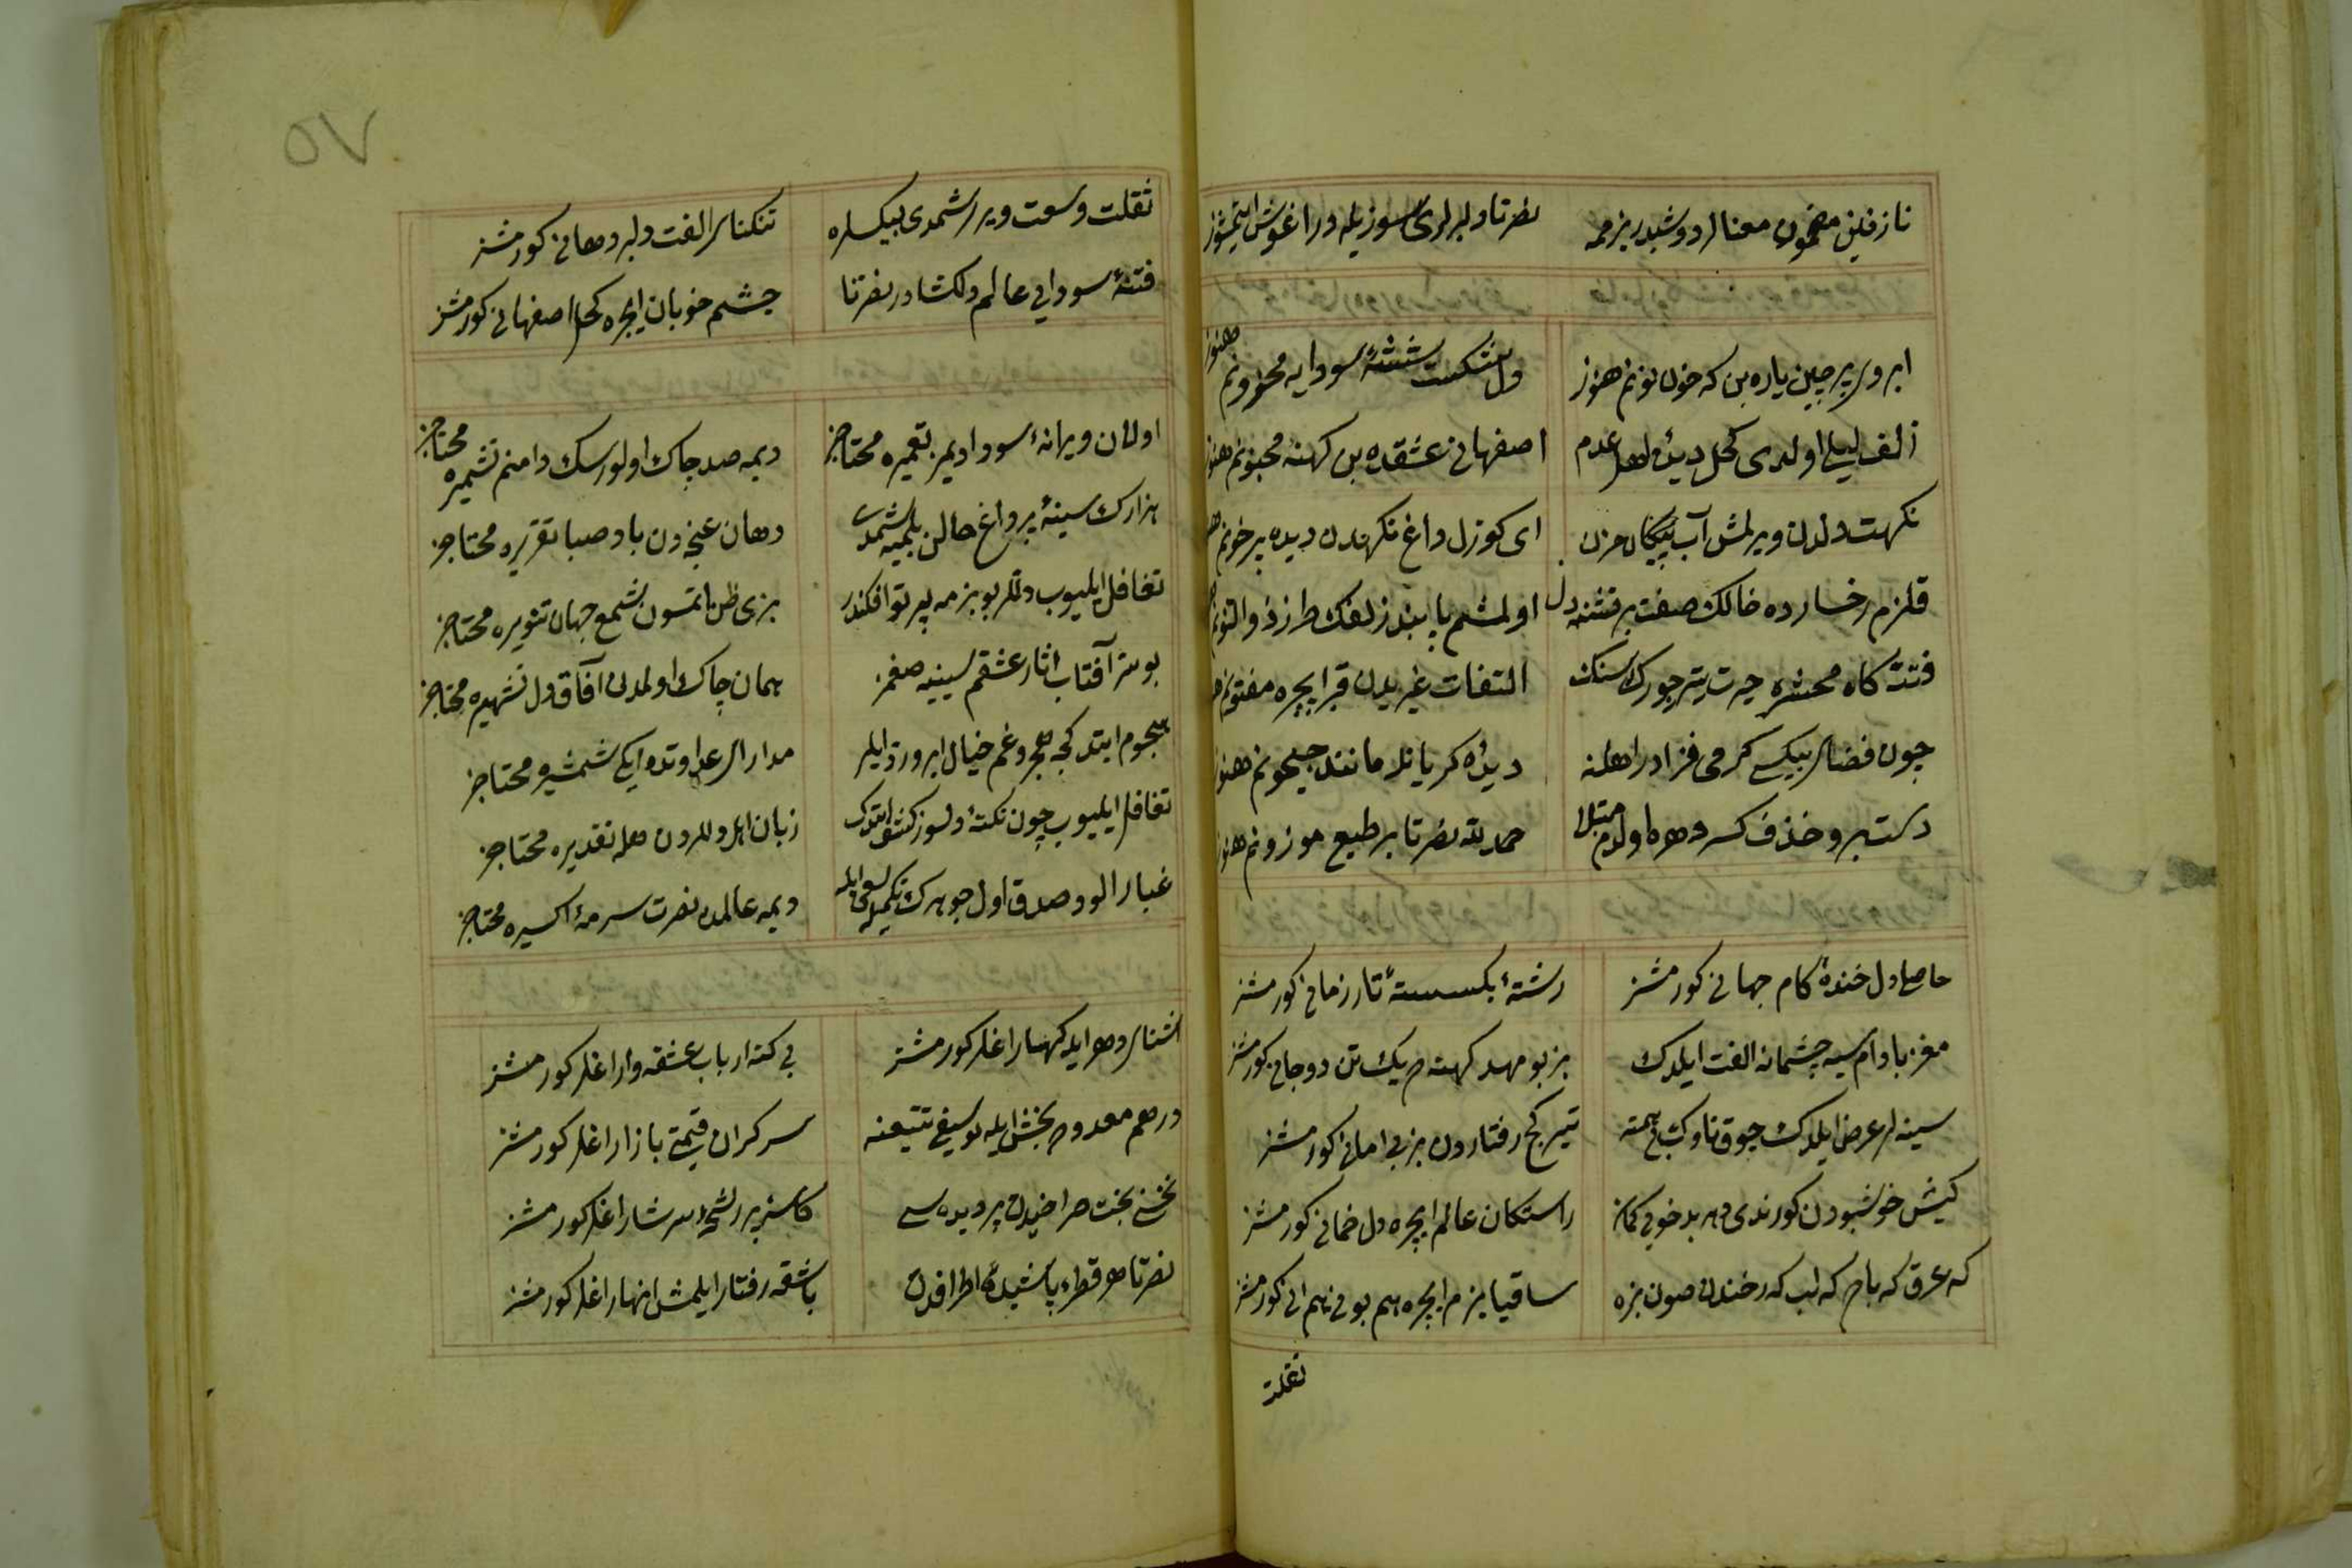 نازفلین مضمون معنالر دوشیدر بزمه
نصرتا دلبرلری سوزیله در اغوش ایتمشز
ابروی پرچین یاره بن که خون نونم هنوز
دل شکست شیشهٔ سودایه محزونم هنوز
زلف لیلی اولدی کحل دیدهٔ اهل عدم
اصفهانی عشقده بن کهنه مجنونم هنوز
نکهت دلدن ویرلمش آب پیکان حزن
ای کوزل داغ نکهدن دیده پر خونم
قلزم رخسارده خالک صفت پر فتنه دل
اولمشم پابند زلفک طرز ذوالنونم
فتنه کاه محشره حیرت یتر جورک سنک
التفات غیریدن قبر ایچره مفتونم
چون فضای بیکسی کرمی فزادر اهلنه
دیدهٔ کریانلر مانند جیحونم هنوز
دست برو خذف کسر دهره اولدم مبتلا
حمد لله نصرتا بر طبع موزونم هنوز
حاصل دل خندهٔ کام جهانی کورمشز
رشتهٔ بکسستهٔ تار زمانی کورمشز
مغز بادام سیه چشمانه الفت ایلدک
بز بو مهد کهنه‌ده یک تن دو جانی کورمشز
سینه لر عرض ایلدک چوق ناوک بی‌همته
تیر کج رفتاردن بز بی امانی کورمشز
کیش خوشبودن کورندی دهر بدخویی کمان
راستکان عالم ایچره دل خمانی کورمشز
که عرق که باده که لب که رخندن صون بزه
ساقیا بزم ایچره هم بونی هم انی کورمشز
ثقلت
ثقلت وسعت ویرر شمدی بیکسلره
تنکنای الفت دلبر دهانی کورمشز
فتنهٔ سودایی عالم دلکشادر نصرتا
چشم خوبان ایچره کحل اصفهانی کورمشز
اولان ویرانهٔ سودا دیمز تعمیره محتاجز
دیمه صد چاک اولورسک دامنم تشمیره محتاجز
هزارک سینهٔ پر داغ حالن بلمیه شمدی
دهان غنچه‌دن باد صبا تقریره محتاجز
تغافل ایلیوب دللر بو بزمه پرتو افکندر
بزی ظن ایتمسون شمع جهان تنویره محتاجز
بوسز آفتاب اثار عشقم سینیه صغمز
همان چاک اولمدن آفاق دل تشهیره محتاجز
هجوم ایتدکجه هجر و غم خیال ابرودر ایلر
مدارای عداوتده ایکی شمشیره محتاجز
تغافل ایلیوب چون نکتهٔ دلسوز کشف ایتدک
زبان اهل دللردن هله تقدیره محتاجز
غبار الود صدق اول جوهرک تکمیل سعی ایله
دیمه عالمده نصرت سرمهٔ اکسیره محتاجز
اشنای دهر ایله کهسار اغلر کورمشز
بی کنه ارباب عشقه وار اغلر کورمشز
درهم معدوده بخش ایله یوسفی تتبعنه
سرکران قیمتی بازار اغلر کورمشز
نخسی بخت صراحیدن پر دیده سی
کاسهٔ پر رشحه سرشار اغلر کورمشز
نصرتا هر قطره پاشیدهٔ اطرافدن
باشقه رفتار ایلمش انهار اغلر کورمشز
٥٧